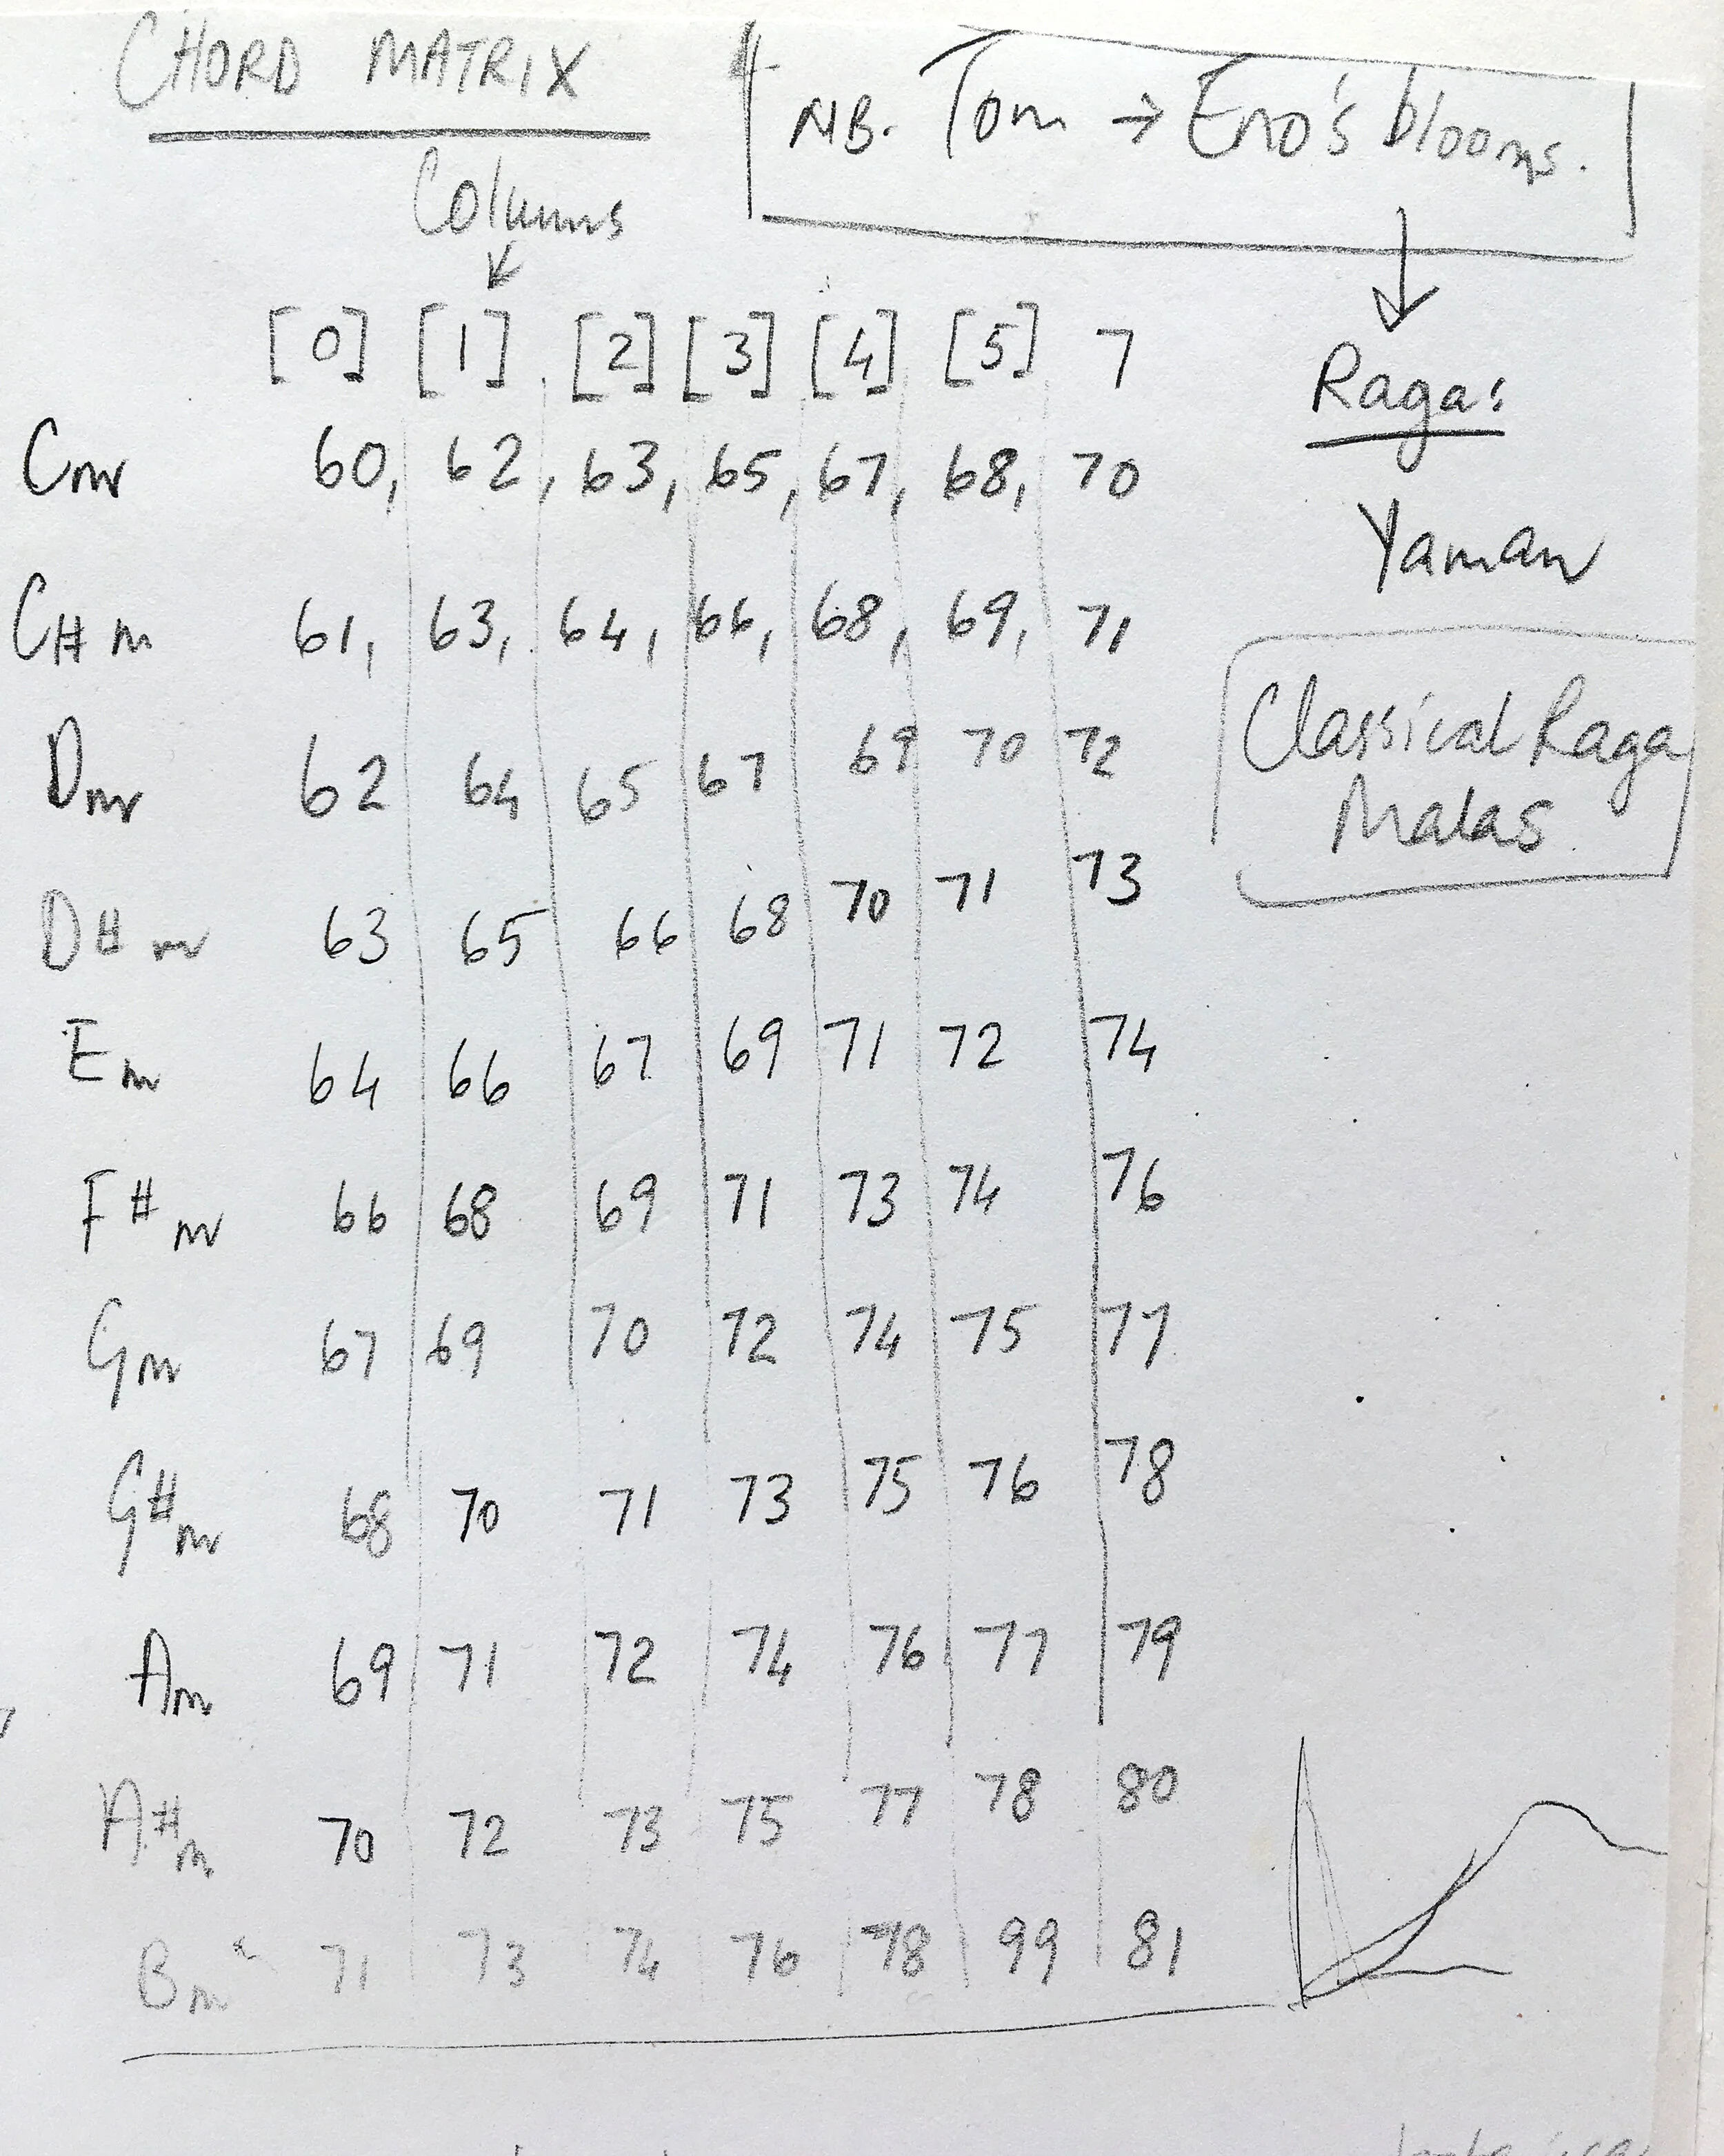 CHORD MATRIX
NB. Tom → Eno's blooms.
Columns
[0] [1] [2] [3] [4] [5] 7
Raga:
Cm 60, 62, 63, 65, 67, 68, 70
Yaman
C# m 61, 63, 64, 66, 68, 69, 71
Classical Raga
Malas
Dm 62 64 65 67 69 70 72
D# m 63 65 66 68 70 71 73
Em 64 66 67 69 71 72 74
F# m 66 68 69 71 73 74 76
Gm 67 69 70 72 74 75 77
G#m 68 70 71 73 75 76 78
Am 69 71 72 74 76 77 79
A#m 70 72 73 75 77 78 80
Bm 71 73 74 76 78 99 81